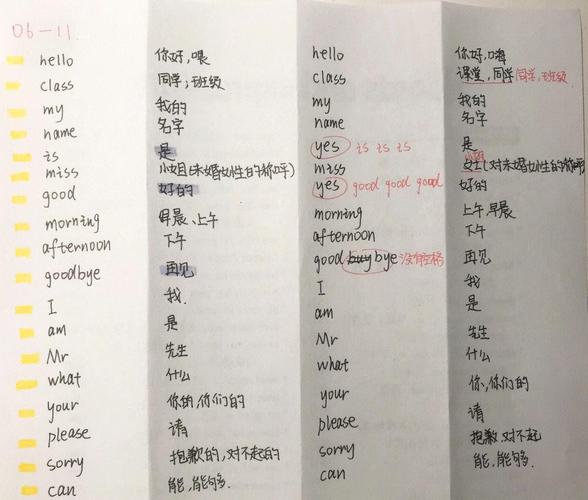 06-11
hello 你好,喂 hello 你好,嗨
class 同学;班级 class 课堂,同学 同学,班级
my 我的 my 我的
name 名字 name 名字
is 是 yes is is is 是
miss 小姐(未婚女性的称呼) miss 女士(对未婚女性的称呼) 小姐
good 好的 yes good good good 好的
morning 早晨、上午 morning 上午、早晨
afternoon 下午 afternoon 下午
goodbye 再见 good buy bye 没有空格 再见
I 我. I 我
am 是 am 是
Mr 先生 Mr 先生
what 什么 what 什么
your 你的,你们的 your 你,你们的
please 请 please 请
sorry 抱歉的,对不起的 sorry 抱歉,对不起
can 能,能够. can 能,能够.